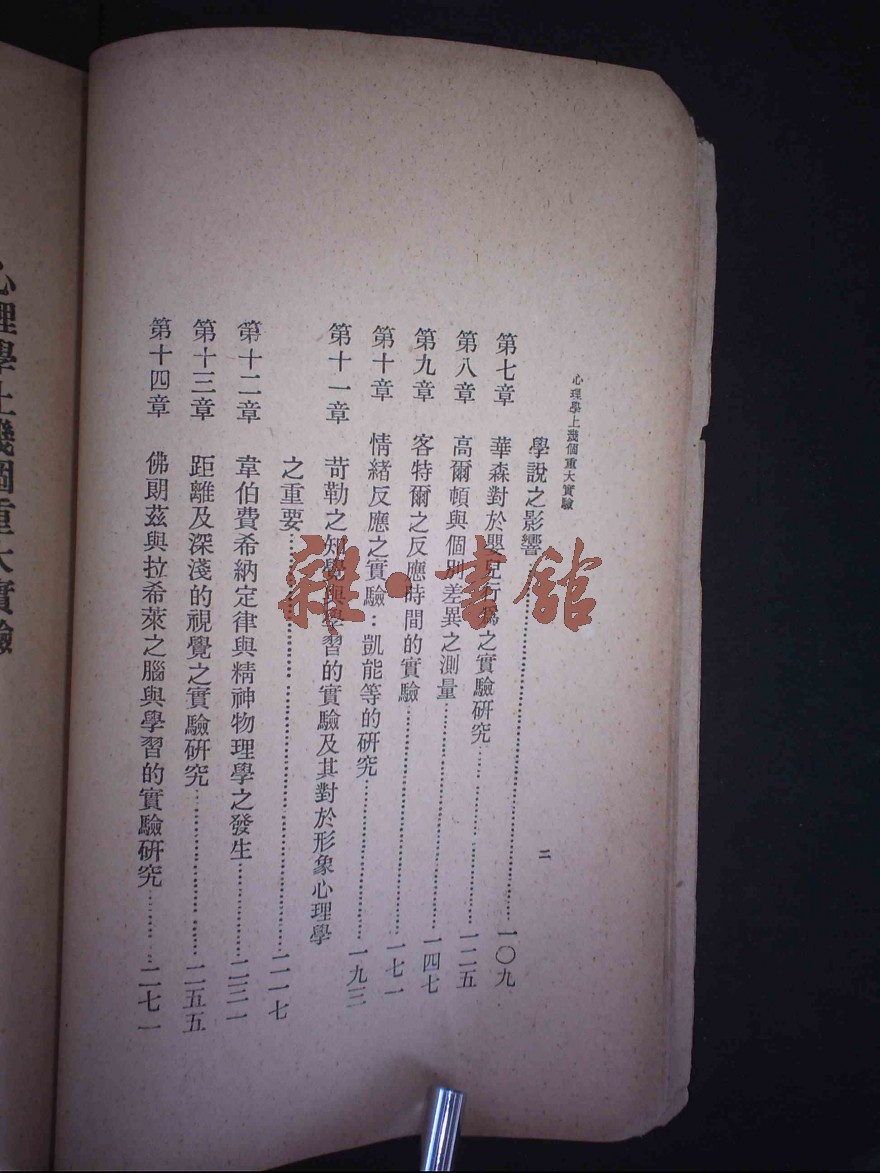 心理學上幾個重大實驗
二
學說之影響……一〇九
第七章 華森對於嬰兒行爲之實驗研究……一二五
第八章 高爾頓與個別差異之測量……一四七
第九章 客特爾之反應時間的實驗……一七一
第十章 情緒反應之實驗:凱能等的研究……一九三
第十一章 苛勒之知覺與學習的實驗及其對於形象心理學
之重要……二一七
第十二章 韋伯費希納定律與精神物理學之發生……二三一
第十三章 距離及深淺的視覺之實驗研究……二五五
第十四章 佛朗茲與拉希萊之腦與學習的實驗研究……二七一
心理學上幾個重大實驗
雜·書館